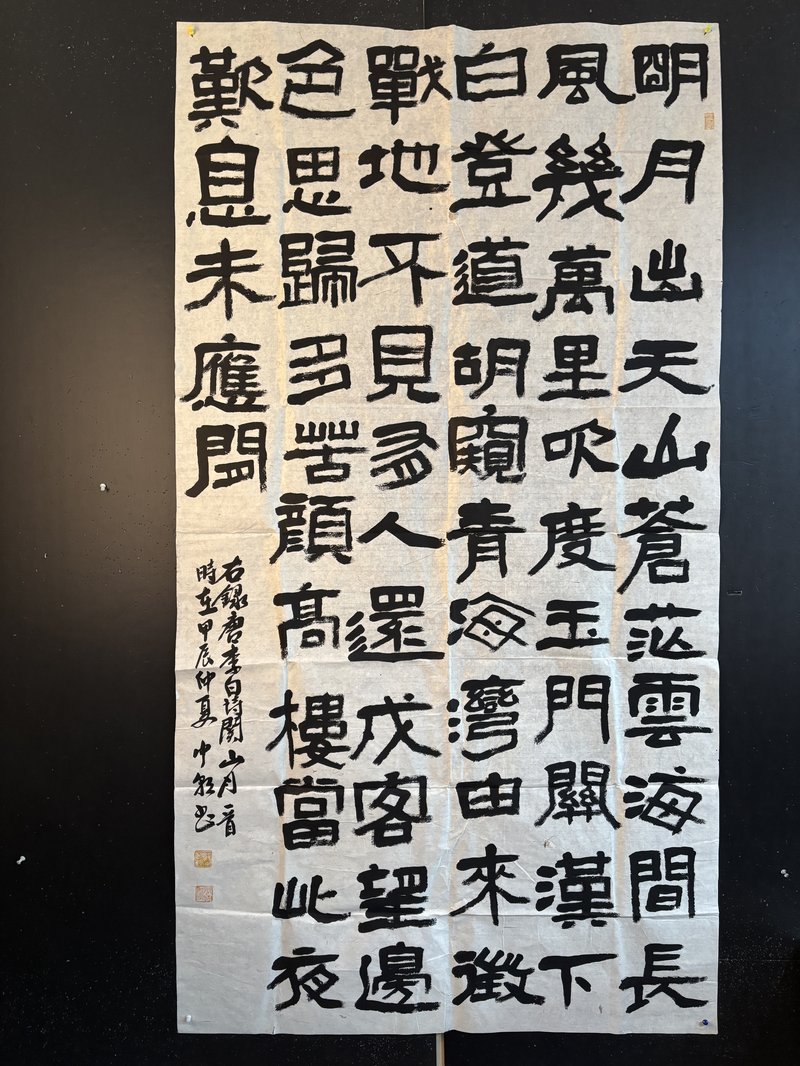 明月出天山蒼茫雲海間長
風幾萬里吹度玉門關漢下
白登道胡窺青海灣由來徵
戰地不見有人還戍客望邊
色思歸多苦顏高樓當此夜
歎息未應閒
右錄唐李白詩關山月一首
時在甲辰仲夏中書